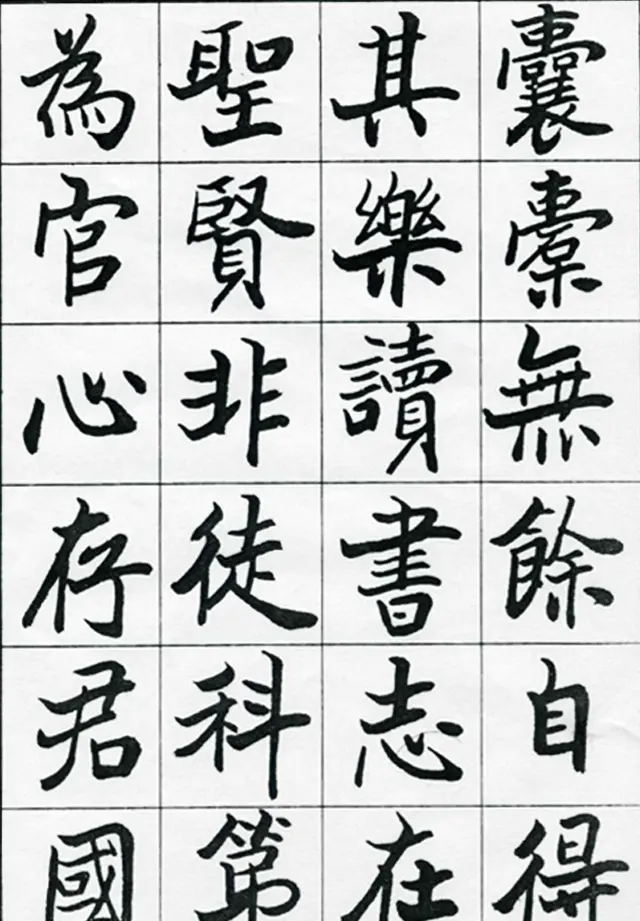 囊橐無餘自得
其樂讀書志在
聖賢非徒科第
為官心存君國